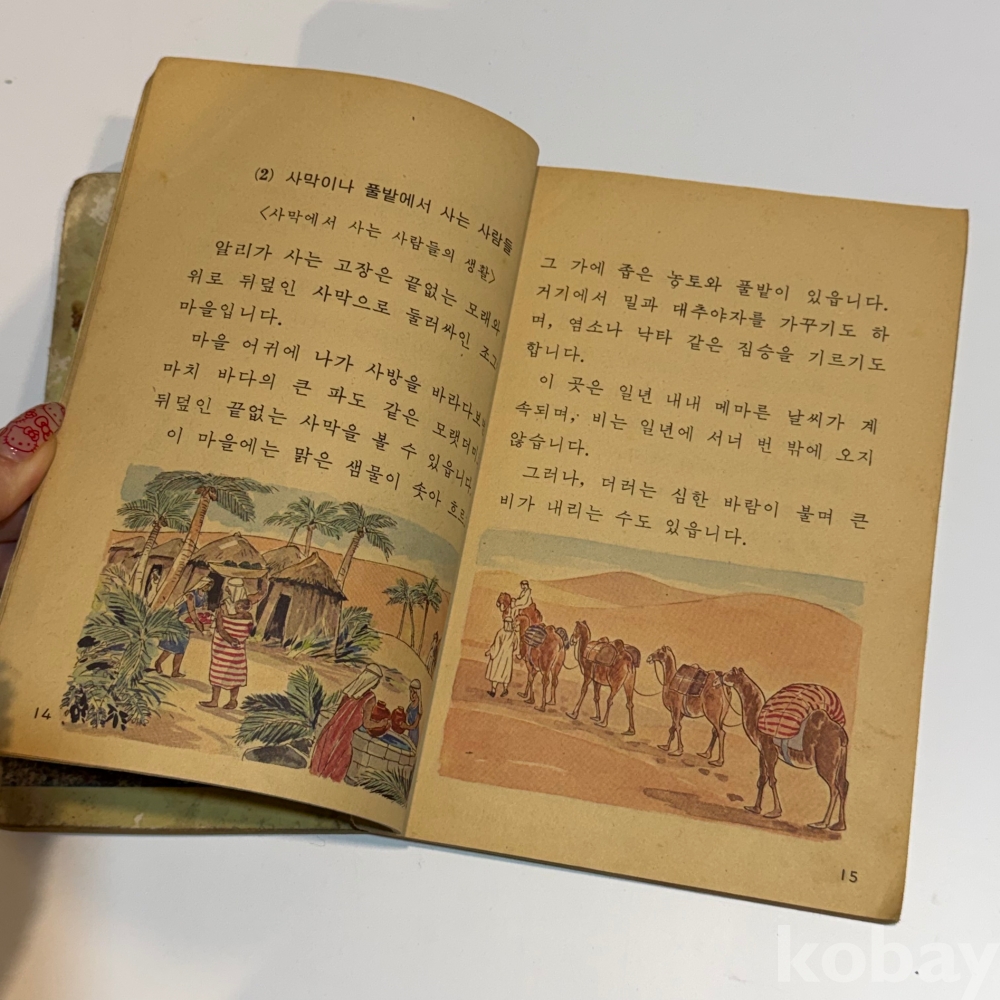 (2) 사막이나 풀밭에서 사는 사람들
〈사막에서 사는 사람들의 생활〉
알리가 사는 고장은 끝없는 모래와
위로 뒤덮인 사막으로 둘러싸인 조그
마을입니다.
마을 어귀에 나가 사방을 바라다보
마치 바다의 큰 파도 같은 모랫더미
뒤덮인 끝없는 사막을 볼 수 있읍니다.
이 마을에는 맑은 샘물이 솟아 흐르
14
그 가에 좁은 농토와 풀밭이 있읍니다.
거기에서 밀과 대추야자를 가꾸기도 하
며, 염소나 낙타 같은 짐승을 기르기도
합니다.
이 곳은 일년 내내 메마른 날씨가 계
속되며, 비는 일년에 서너 번 밖에 오지
않습니다.
그러나, 더러는 심한 바람이 불며 큰
비가 내리는 수도 있읍니다.
15
kobay